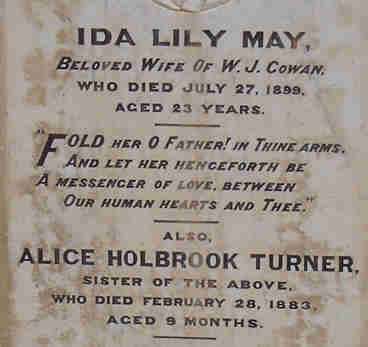 IDA LILY MAY,
BELOVED WIFE OF W. J. COWAN.
WHO DIED JULY 27, 1899,
AGED 23 YEARS.
"FOLD HER O FATHER! IN THINE ARMS,
AND LET HER HENCEFORTH BE
A MESSENGER OF LOVE, BETWEEN
OUR HUMAN HEARTS AND THEE."
ALSO,
ALICE HOLBROOK TURNER,
SISTER OF THE ABOVE,
WHO DIED FEBRUARY 28, 1883,
AGED 9 MONTHS.